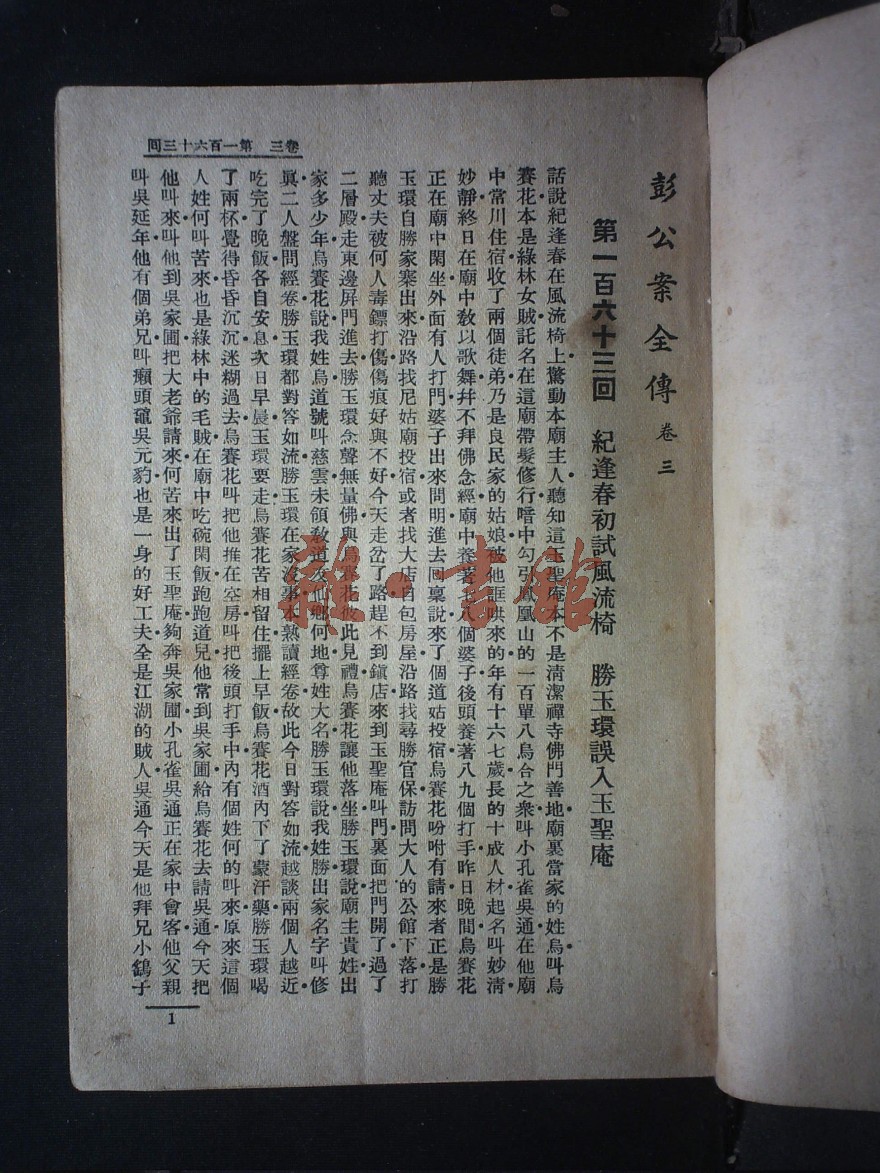 彭公案全傳 卷三
第一百六十三回 紀逢春初試風流椅 勝玉環誤入玉聖庵
話說紀逢春在風流椅上驚動本廟主人聽知這玉聖庵本不是清潔禪寺佛門善地廟裏當家的姓烏叫烏
賽花本是綠林女賊託名在這廟帶髮修行暗中勾引鳳凰山的一百單八烏合之衆叫小孔雀吳通在他廟
中常川住宿收了兩個徒弟乃是良民家的姑娘被他誆哄來的年有十六七歲長的十成人材起名叫妙清
妙靜終日在廟中敎以歌舞幷不拜佛念經廟中養著七八個婆子後頭養著八九個打手昨日晚間烏賽花
正在廟中閑坐外面有人打門婆子出來問明進去回稟說來了個道姑投宿烏賽花吩咐有請來者正是勝
玉環自勝家寨出來沿路找尼姑廟投宿或者找大店自包房屋沿路找尋勝官保訪問大人的公館下落打
聽丈夫被何人毒鏢打傷傷痕好與不好今天走岔了路趕不到鎭店來到玉聖庵叫門裏面把門開了過了
二層殿走東邊屏門進去勝玉環念聲無量佛與烏賽花彼此見禮烏賽花讓他落坐勝玉環說廟主貴姓出
家多少年烏賽花說我姓烏道號叫慈雲未領敎道友仙鄉何地尊姓大名勝玉環說我姓勝出家名字叫修
眞二人盤問經卷勝玉環都對答如流勝玉環在家沒事本熟讀經卷故此今日對答如流越談兩個人越近
吃完了晚飯各自安息次日早晨玉環要走烏賽花苦相留住擺上早飯烏賽花酒內下了蒙汗藥勝玉環喝
了兩杯覺得昏昏沉沉迷糊過去烏賽花叫把他推在空房叫把後頭打手中內有個姓何的叫來原來這個
人姓何叫苦來也是綠林中的毛賊在廟中吃碗閑飯跑跑道兒他常到吳家圃給烏賽花去請吳通今天把
他叫來叫他到吳家圃把大老爺請來何苦來出了玉聖庵夠奔吳家圃小孔雀吳通正在家中會客他父親
叫吳延年他有個弟兄叫癩頭黿吳元豹也是一身的好工夫全是江湖的賊人吳通今天是他拜兄小鷂子
卷三 第一百六十三回
1
雜·書館